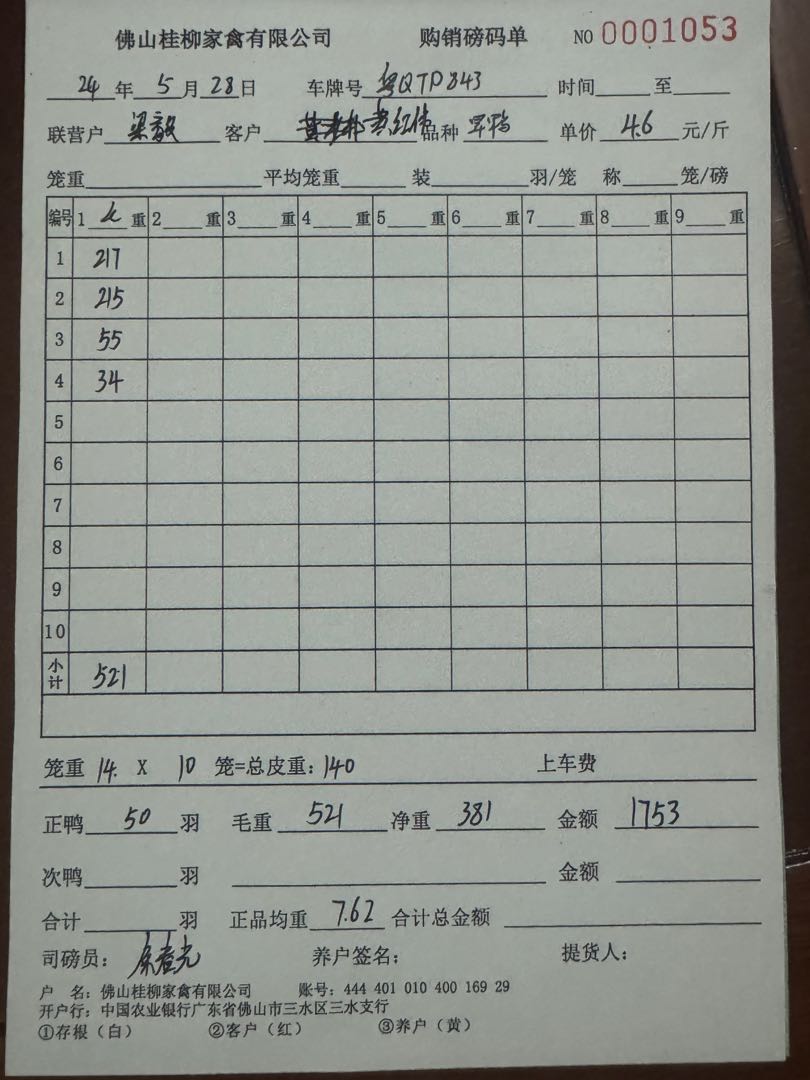 佛山桂柳家禽有限公司 购销磅码单 NO 0001053
24年5月28日 车牌号 粤QTP843 时间 至
联营户 梁毅 客户 黄红伟 品种 旱鸭 单价 4.6 元/斤
笼重 平均笼重 装 羽/笼 称 笼/磅
编号 1 重 2 重 3 重 4 重 5 重 6 重 7 重 8 重 9 重
1 217
2 215
3 55
4 34
5
6
7
8
9
10
小计 521
笼重 14. X 10 笼=总皮重：140 上车费
正鸭 50 羽 毛重 521 净重 381 金额 1753
次鸭 羽 金额
合计 羽 正品均重 7.62 合计总金额
司磅员： 养户签名： 提货人：
户 名：佛山桂柳家禽有限公司 账号：444 401 010 400 169 29
开户行：中国农业银行广东省佛山市三水区三水支行
①存根（白） ②客户（红） ③养户（黄）